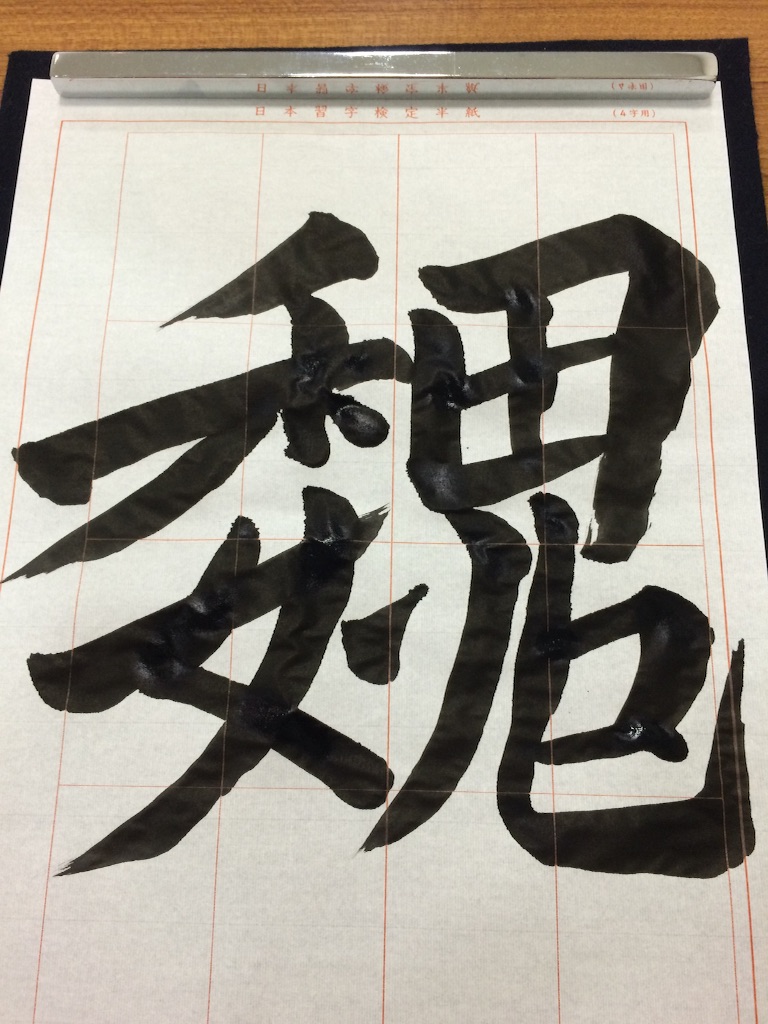 日本習字検定半紙 (4字用)
魏